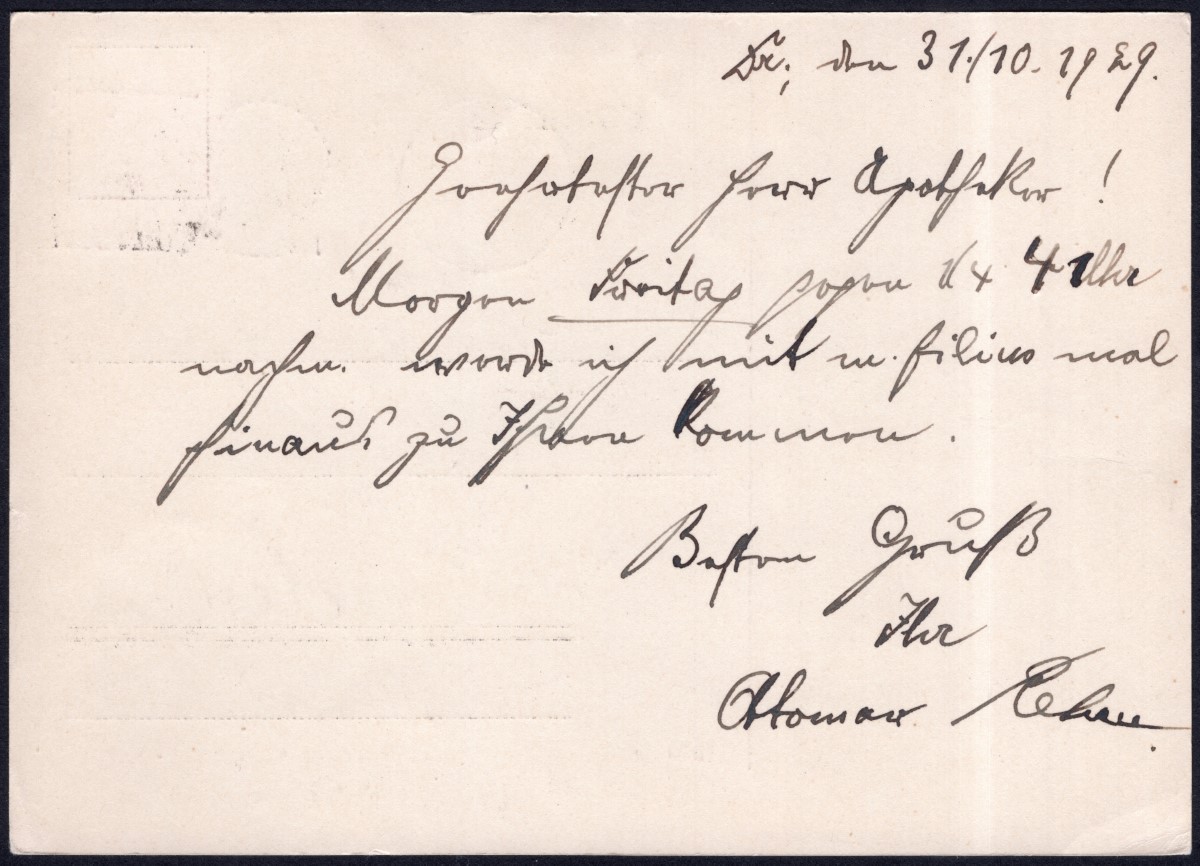 Dr., den 31./10. 1929.
Geehrtester Herr Apotheker!
Morgen Freitag gegen 1/2 4 Uhr
nachm. werde ich mit m. filius mal
hinaus zu Ihnen kommen.
Besten Gruß
Ihr
Ottomar